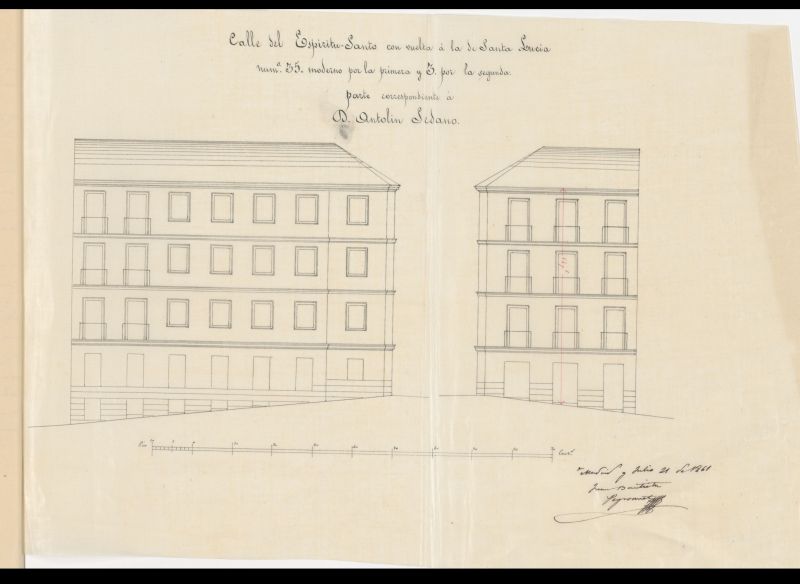 Calle del Espiritu-Santo con vuelta á la de Santa Lucia
num.º 35. moderno por la primera y 3. por la segunda.
parte correspondiente á
D. Antolin Sedano.
Madrid y Julio 21 de 1861
Juan Bautista
Peyronnet